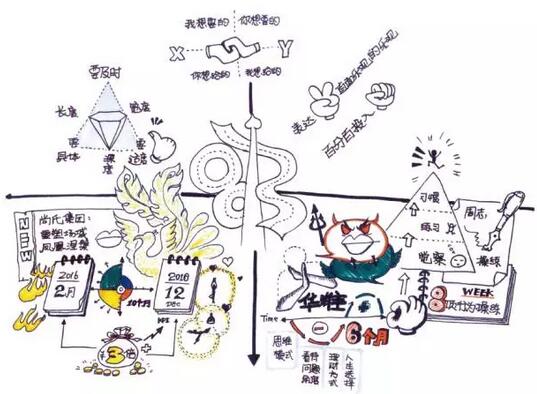 我想要的
你想要的
X
Y
你想给的
我想给的
要及时
长度
宽度
要
具体
深度
要
适度
表达
直面乐观的乐观
百分百投入
NEW
尚氏集团:
重塑场域
凤凰涅槃
2016
2月
10个月
2016
12
DEC
3倍
KPI
Time
6个月
思维
模式
看待
问题
角度
理财
方式
人生
选择
习惯
练习
觉察
周志
操练
WEEK
8
8次行为操练